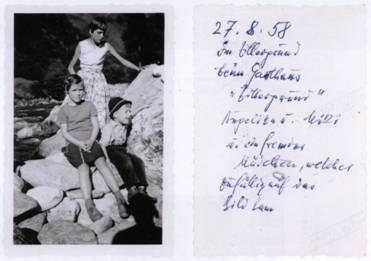 27. 8. 58
Im Zillergrund
beim Gasthaus
"Zillergrund"
Angelika u. Willi
u. ein fremdes
Mädchen, welches
zufällig auf das
Bild kam